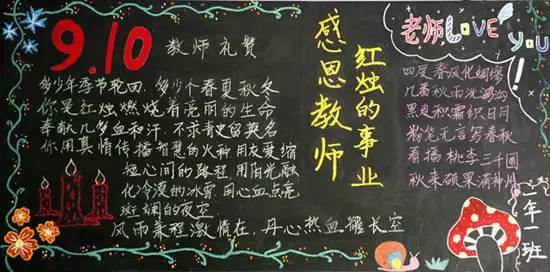 9.10
教师礼赞
多少年季节轮回，多少个春夏秋冬
你是红烛燃烧着亮丽的生命
奉献几多血和汗，不求青史留英名
你用真情传播智慧的火种 用友爱缩
短心间的路程 用阳光融
化冷漠的冰雪 用心血点亮
斑斓的夜空
风雨兼程激情在，丹心热血耀长空
感恩教师
红烛的事业
老师LOVE YOU
四度春风化绸缪
几番秋雨洗鸿沟
黑发积霜织日月
粉笔无言写春秋
看播桃李三千圃
秋来硕果满神州
二年一班